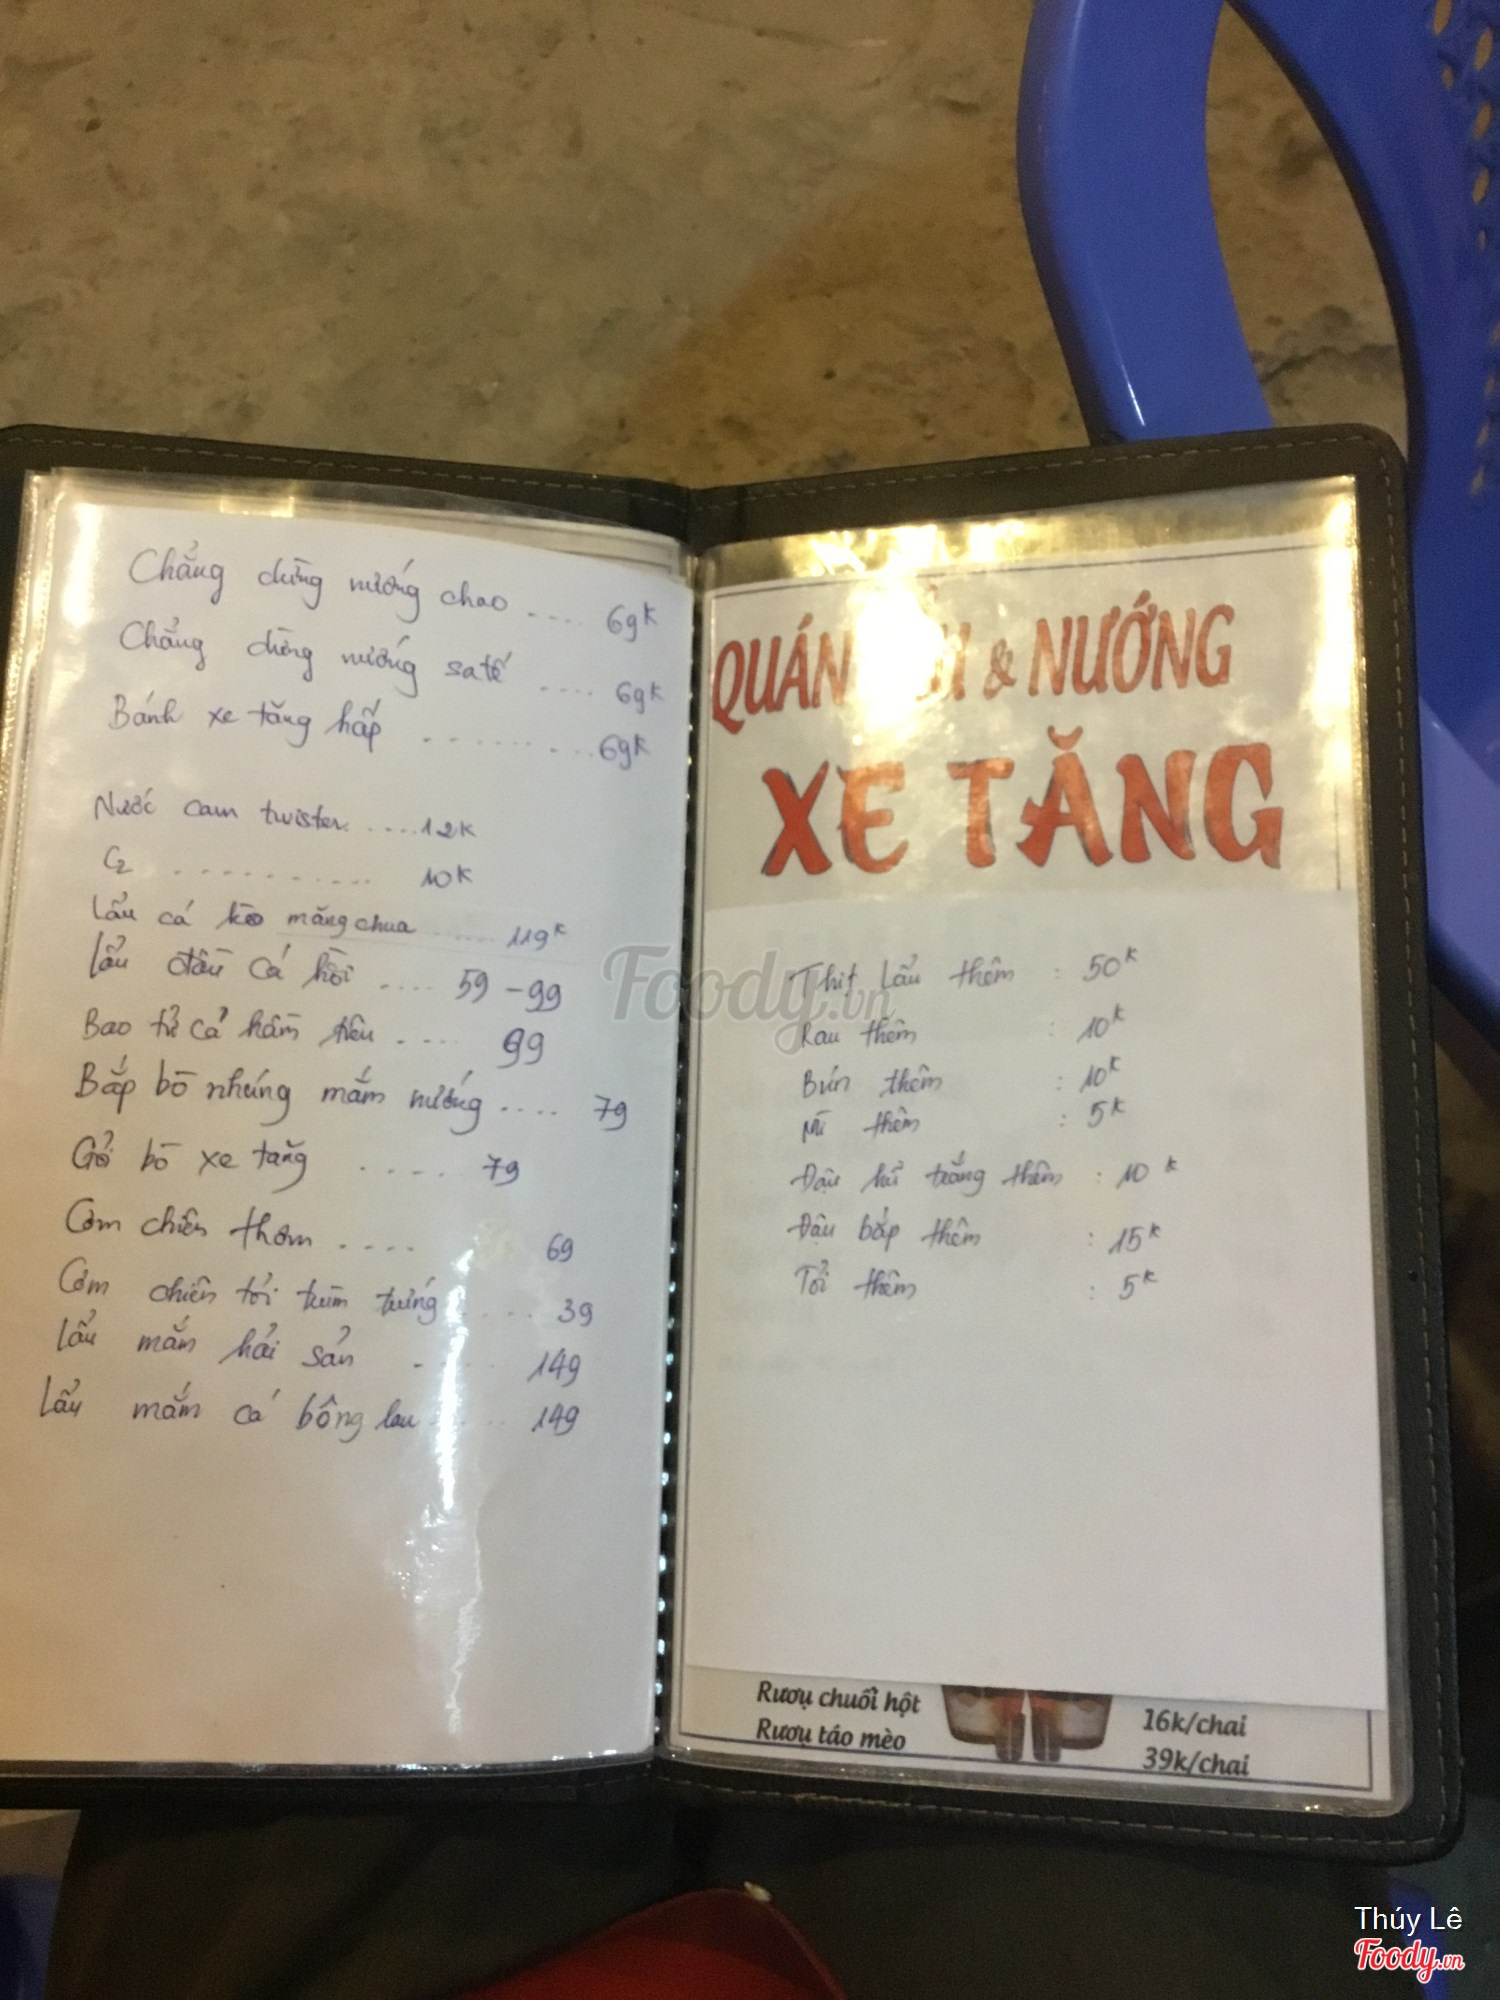 Chẳng dừng nướng chao .... 69K
Chẳng dừng nướng satế .... 69K
Bánh xe tăng hấp ......... 69K
Nước cam twister .... 12K
C2 .......... 10K
Lẩu cá kèo măng chua ..... 119K
Lẩu đầu cá hồi .... 59 - 99
Bao tử cá hầm tiêu .... 99
Bắp bò nhúng mắm nướng .... 79
Gỏi bò xe tăng ..... 79
Cơm chiên thơm .... 69
Cơm chiên tỏi trùm trứng ..... 39
Lẩu mắm hải sản .... 149
Lẩu mắm cá bông lau .... 149
QUÁN & NƯỚNG
XE TĂNG
Thịt lẩu thêm : 50K
Rau thêm : 10K
Bún thêm : 10K
Mì thêm : 5K
Đậu hủ trắng thêm : 10K
Đậu bắp thêm : 15K
Tỏi thêm : 5K
Rượu chuối hột 16k/chai
Rượu táo mèo 39k/chai
Foody.vn
Thúy Lê
Foody.vn